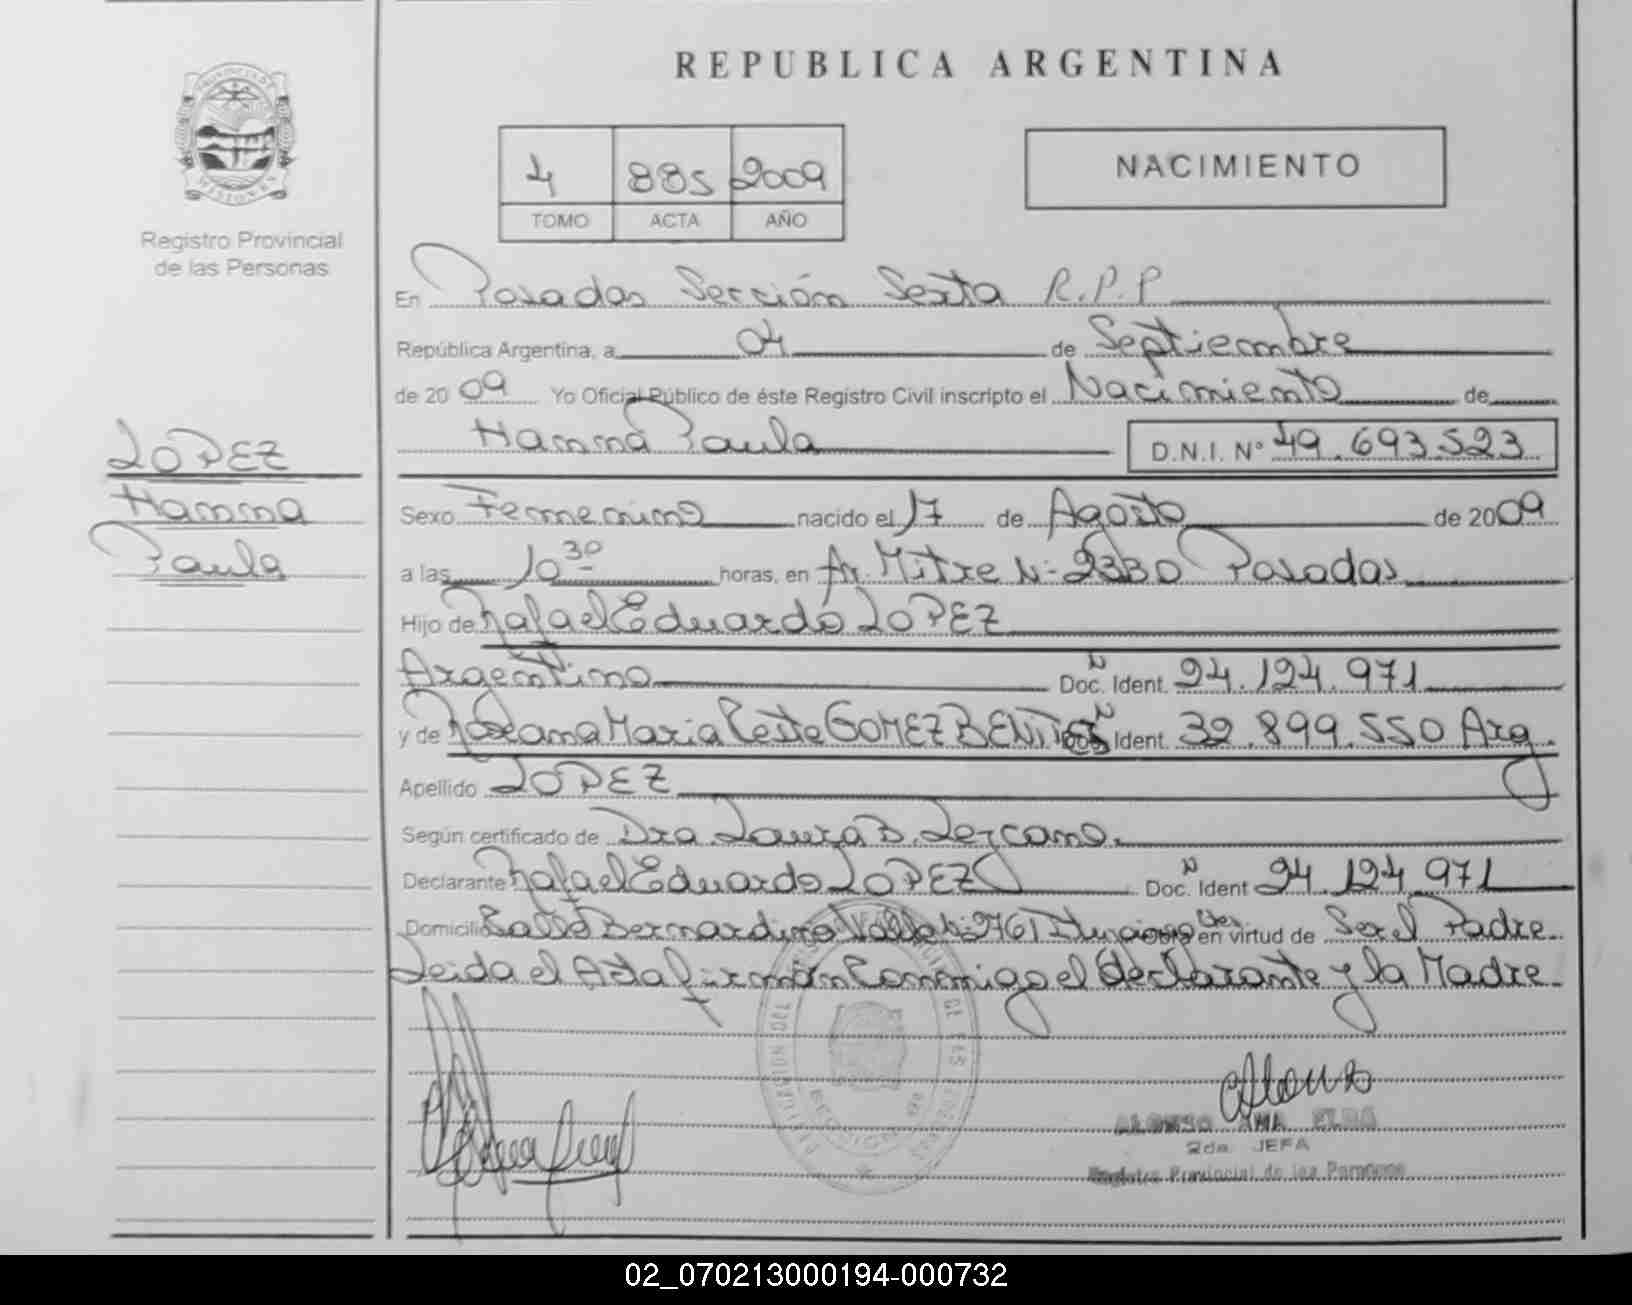 REPUBLICA ARGENTINA
PROVINCIA DE
MISIONES
Registro Provincial
de las Personas
4 885 2009
TOMO ACTA AÑO
NACIMIENTO
En Posadas Sección Sexta R.P.P
República Argentina, a 04 de Septiembre
de 2009 Yo Oficial Público de éste Registro Civil inscripto el Nacimiento de
Hanna Paula D.N.I. Nº 49.693.523
LOPEZ
Hanna
Paula
Sexo Femenino nacido el 17 de Agosto de 2009
a las 10 30 horas, en Av. Mitre Nº 2330 Posadas
Hijo de Rafael Eduardo LOPEZ
Argentino Doc. Ident. 24.124.971
y de Roxana Maria Celeste GOMEZ BENITEZ Doc. Ident. 32.899.550 Arg.
Apellido LOPEZ
Según certificado de Dra. Laura B. Lezcano.
Declarante Rafael Eduardo LOPEZ Doc. Ident 24.124.971
Domicilio Calle Bernardino Valle Nº 2761 en virtud de Ser el Padre
Leida el Acta firman Conmigo el declarante y la Madre
ALONSO ANA ELBA
2da. JEFA
Registro Provincial de las Personas
02_070213000194-000732